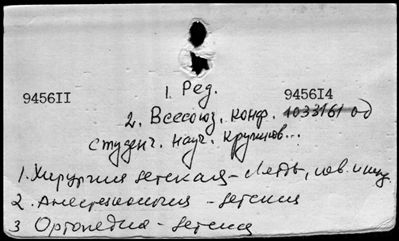 1. Ред.
9456II 9456I4
2. Всесоюз. конф. 1033161 од
студенч. науч. кружков...
1. Хирургия детская -
2. Анестезиология - детская
3 Ортопедия - детская